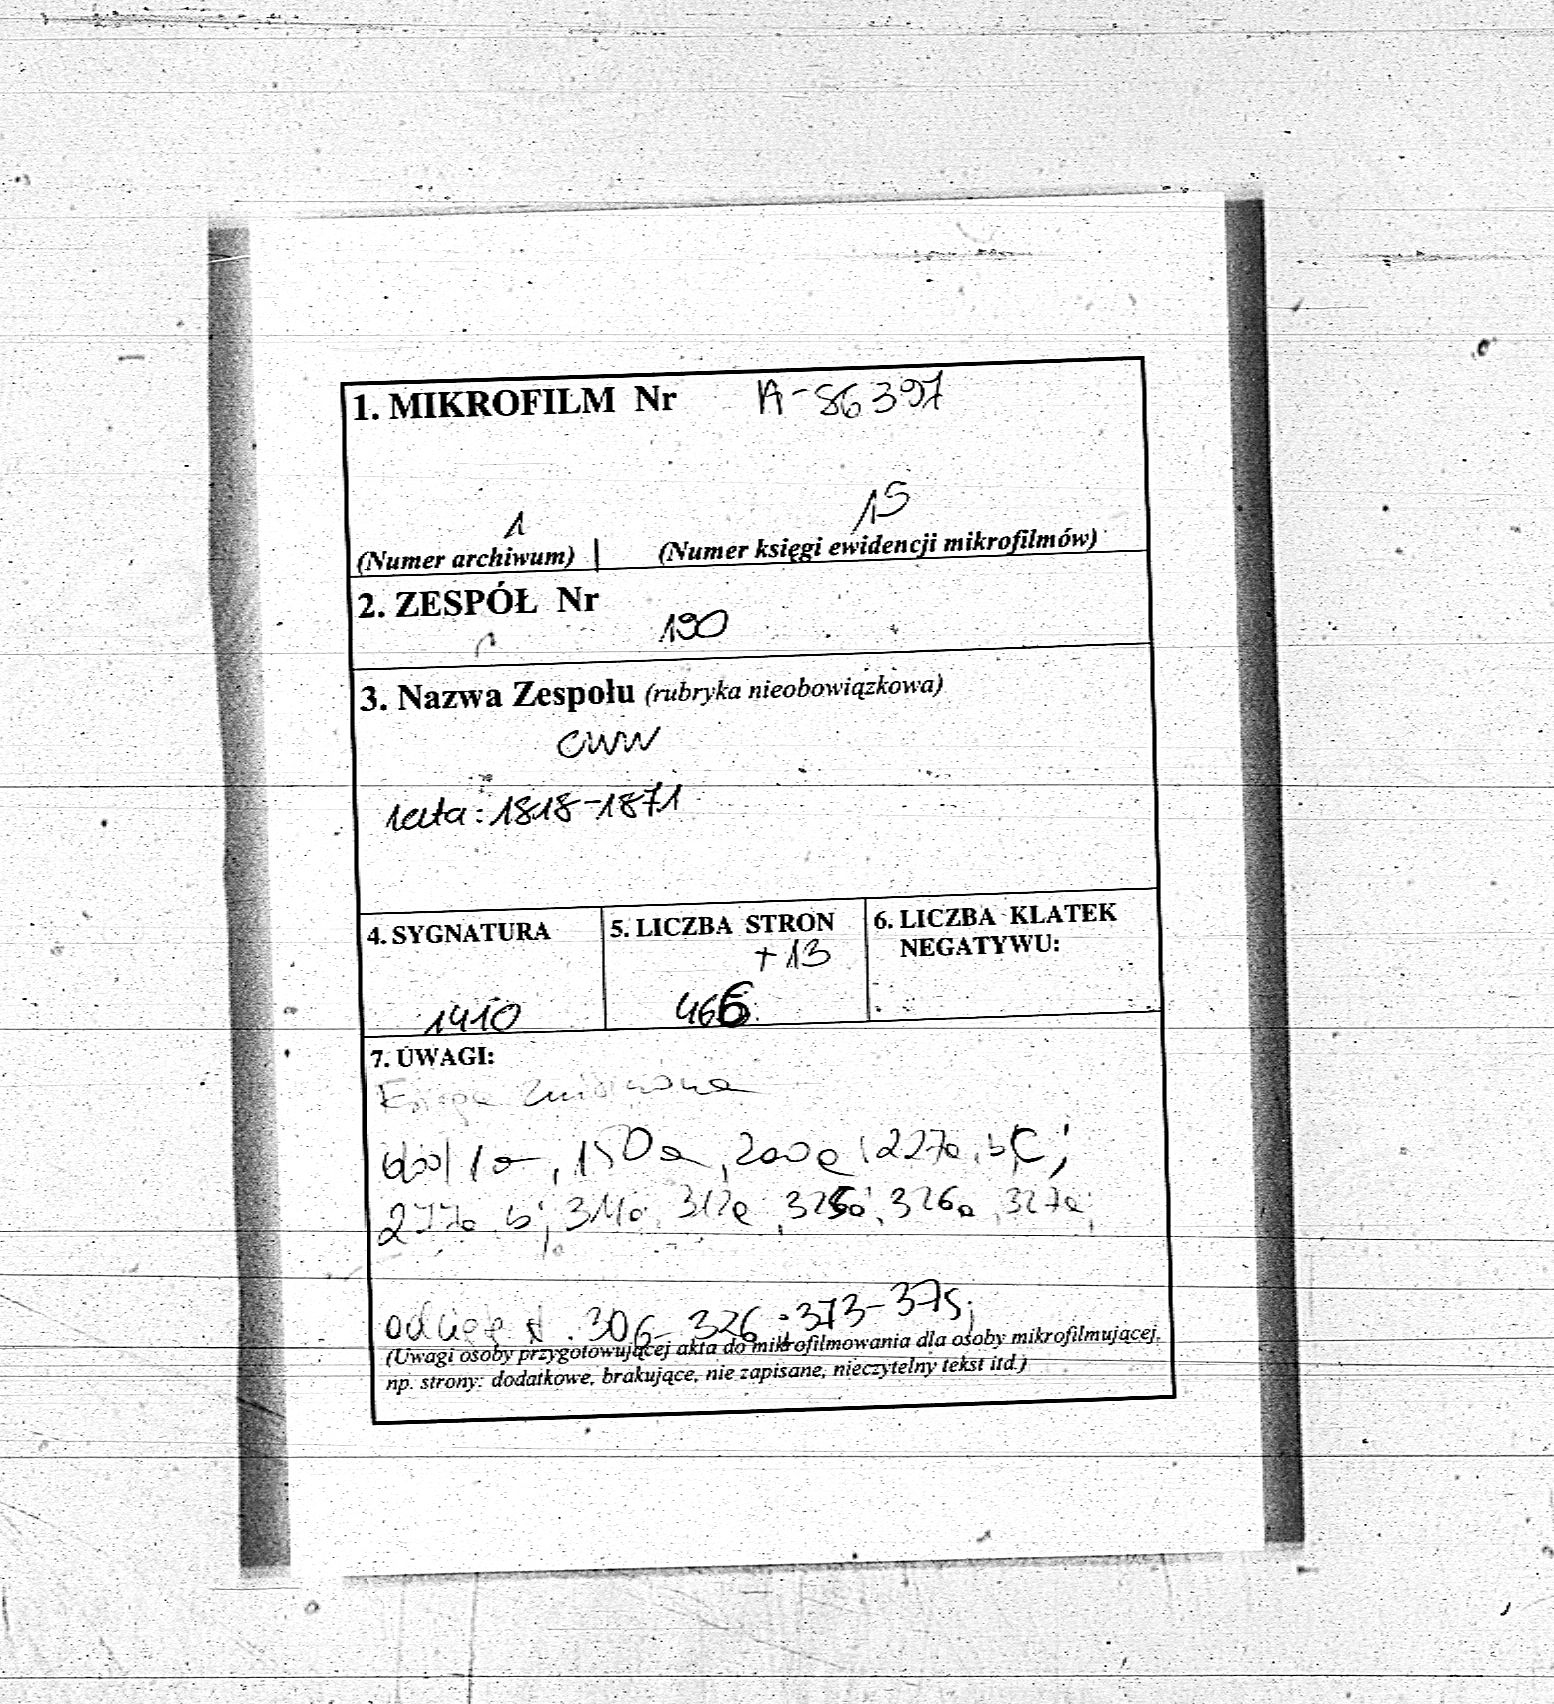 1. MIKROFILM Nr A-86397
1 15
(Numer archiwum) (Numer księgi ewidencji mikrofilmów)
2. ZESPÓŁ Nr
190
3. Nazwa Zespołu (rubryka nieobowiązkowa)
CWW
lata: 1818-1871
4. SYGNATURA 5. LICZBA STRON 6. LICZBA KLATEK
NEGATYWU:
+13
1410 466
7. UWAGI:
Księga
dod 1a, 150a, 200a, 227a, b, c;
277a, b; 311a, 312a, 325a, 326a, 327a;
306-326; 373-375;
(Uwagi osoby przygotowującej akta do mikrofilmowania dla osoby mikrofilmującej,
np. strony: dodatkowe, brakujące, nie zapisane, nieczytelny tekst itd.)